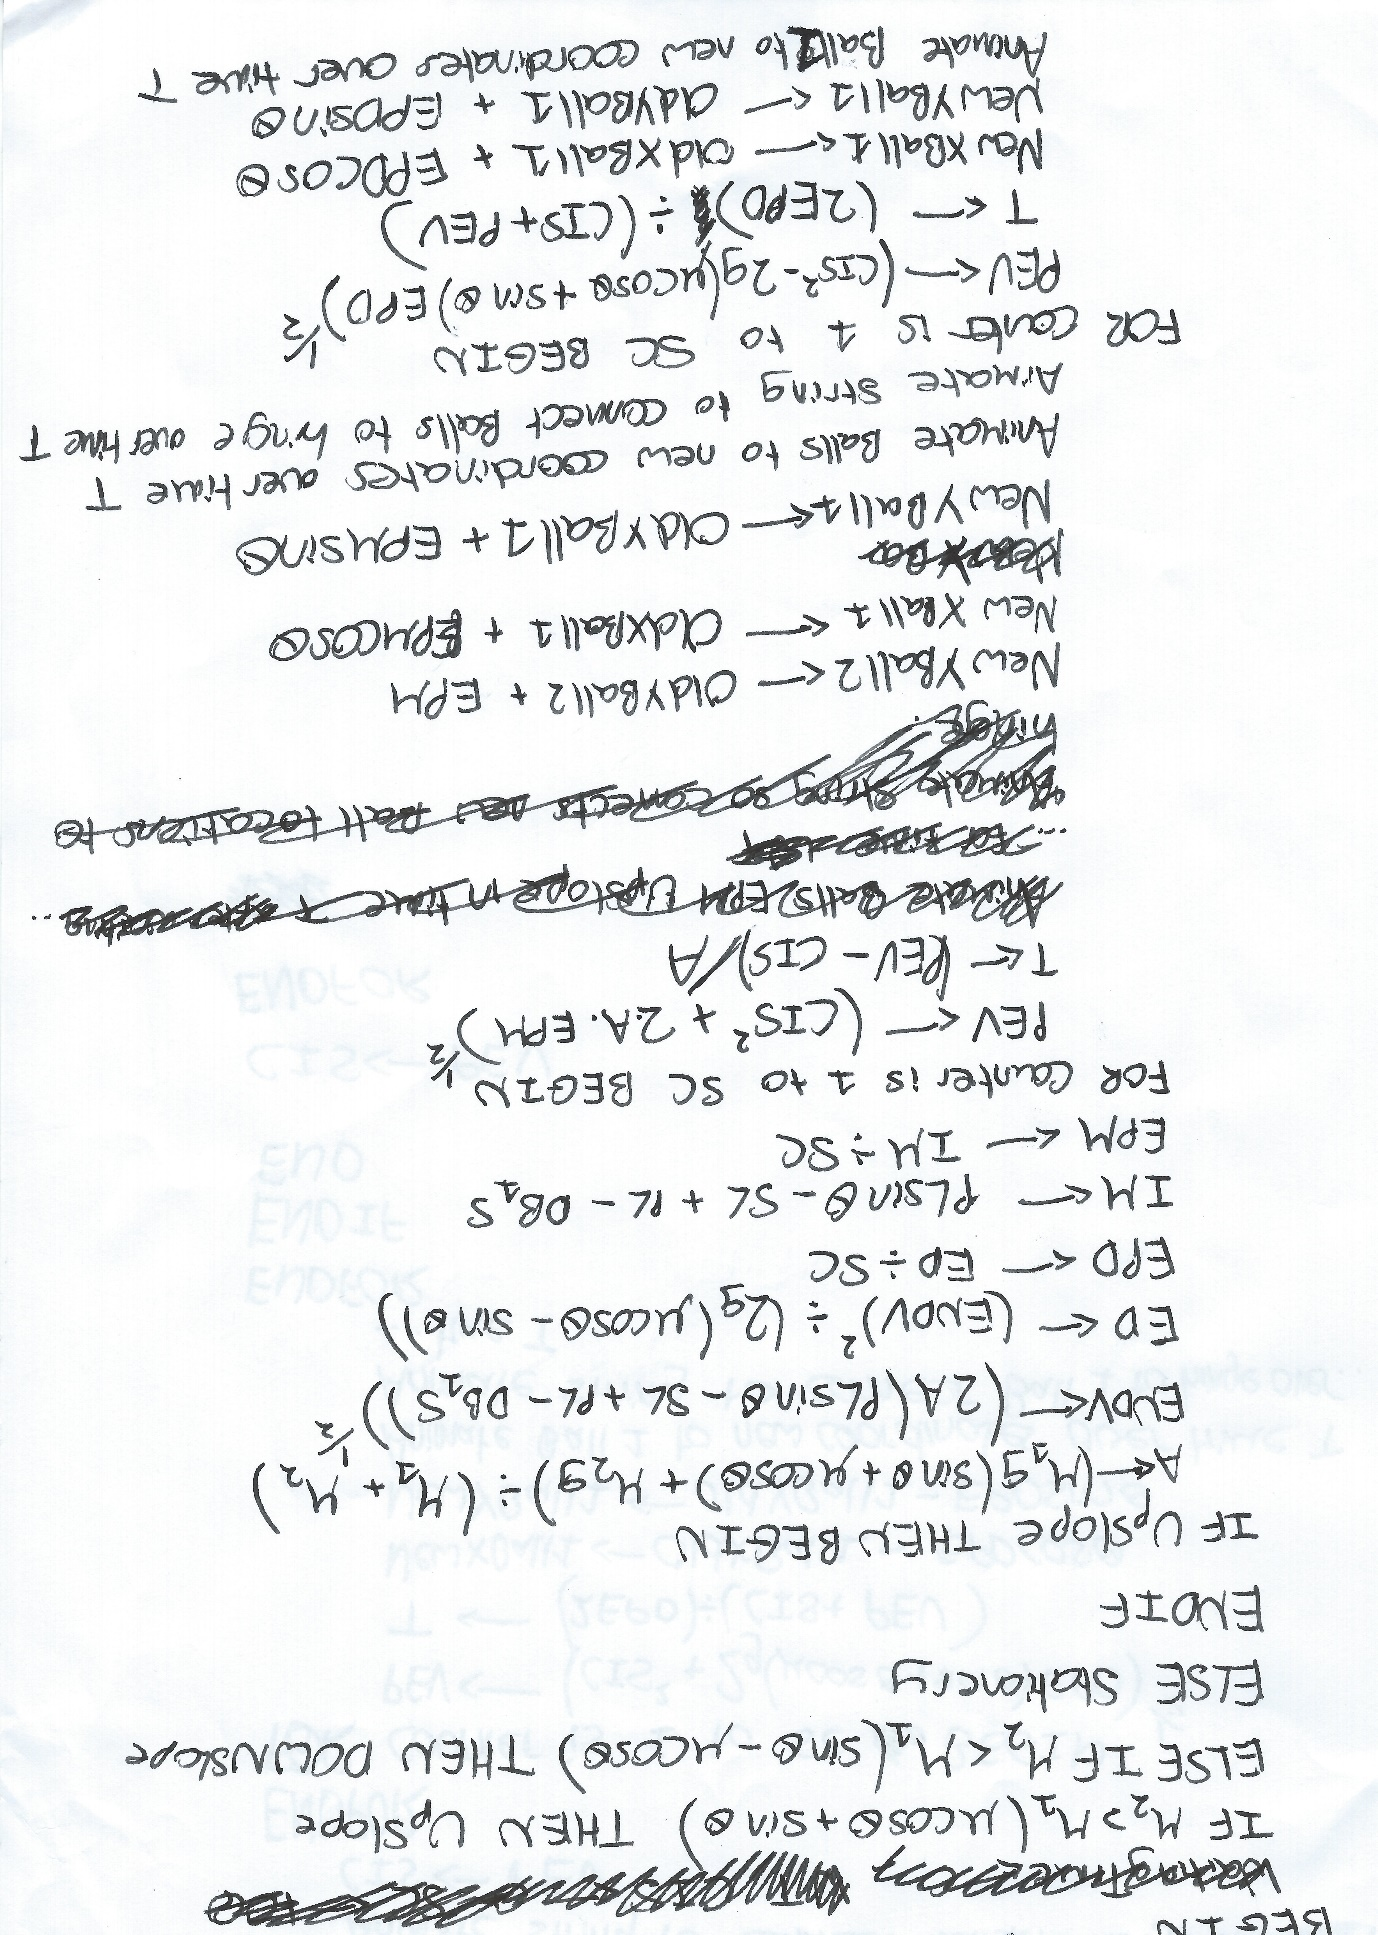 BEGIN
IF M₂ > M₁(μcosθ + sinθ) THEN UpSlope
ELSE IF M₂ < M₁(sinθ - μcosθ) THEN DOWNSlope
ELSE Stationery
ENDIF
IF UpSlope THEN BEGIN
A ← (M₁g(sinθ + μcosθ) + M₂g) ÷ (M₁ + M₂)
ENDV ← (2A(PLsinθ - SL + PL - DB₁S))^½
ED ← (ENDV)² ÷ (2g(μcosθ - sinθ))
EPD ← ED ÷ SC
IM ← PLsinθ - SL + PL - DB₁S
EPM ← IM ÷ SC
FOR Counter is 1 to SC BEGIN
PEV ← (CIS² + 2A.EPM)^½
T ← (PEV - CIS)/A
Animate Balls EPM Upslope in time T
... For time
Animate string so connects new Ball locations to
hinge.
New YBall2 ← Old YBall2 + EPM
New XBall1 ← OldXBall1 + EPMcosθ
New YBall1 ← Old YBall1 + EPMsinθ
Animate Balls to new coordinates over time T
Aimate String to connect Balls to hinge over time T
FOR Counter is 1 to SC BEGIN
PEV ← (CIS² - 2g(μcosθ + sinθ)EPD)^½
T ← (2EPD) ÷ (CIS + PEV)
New XBall1 ← OldXBall1 + EPDcosθ
New YBall1 ← OldYBall1 + EPDsinθ
Animate Ball1 to new coordinates over time T